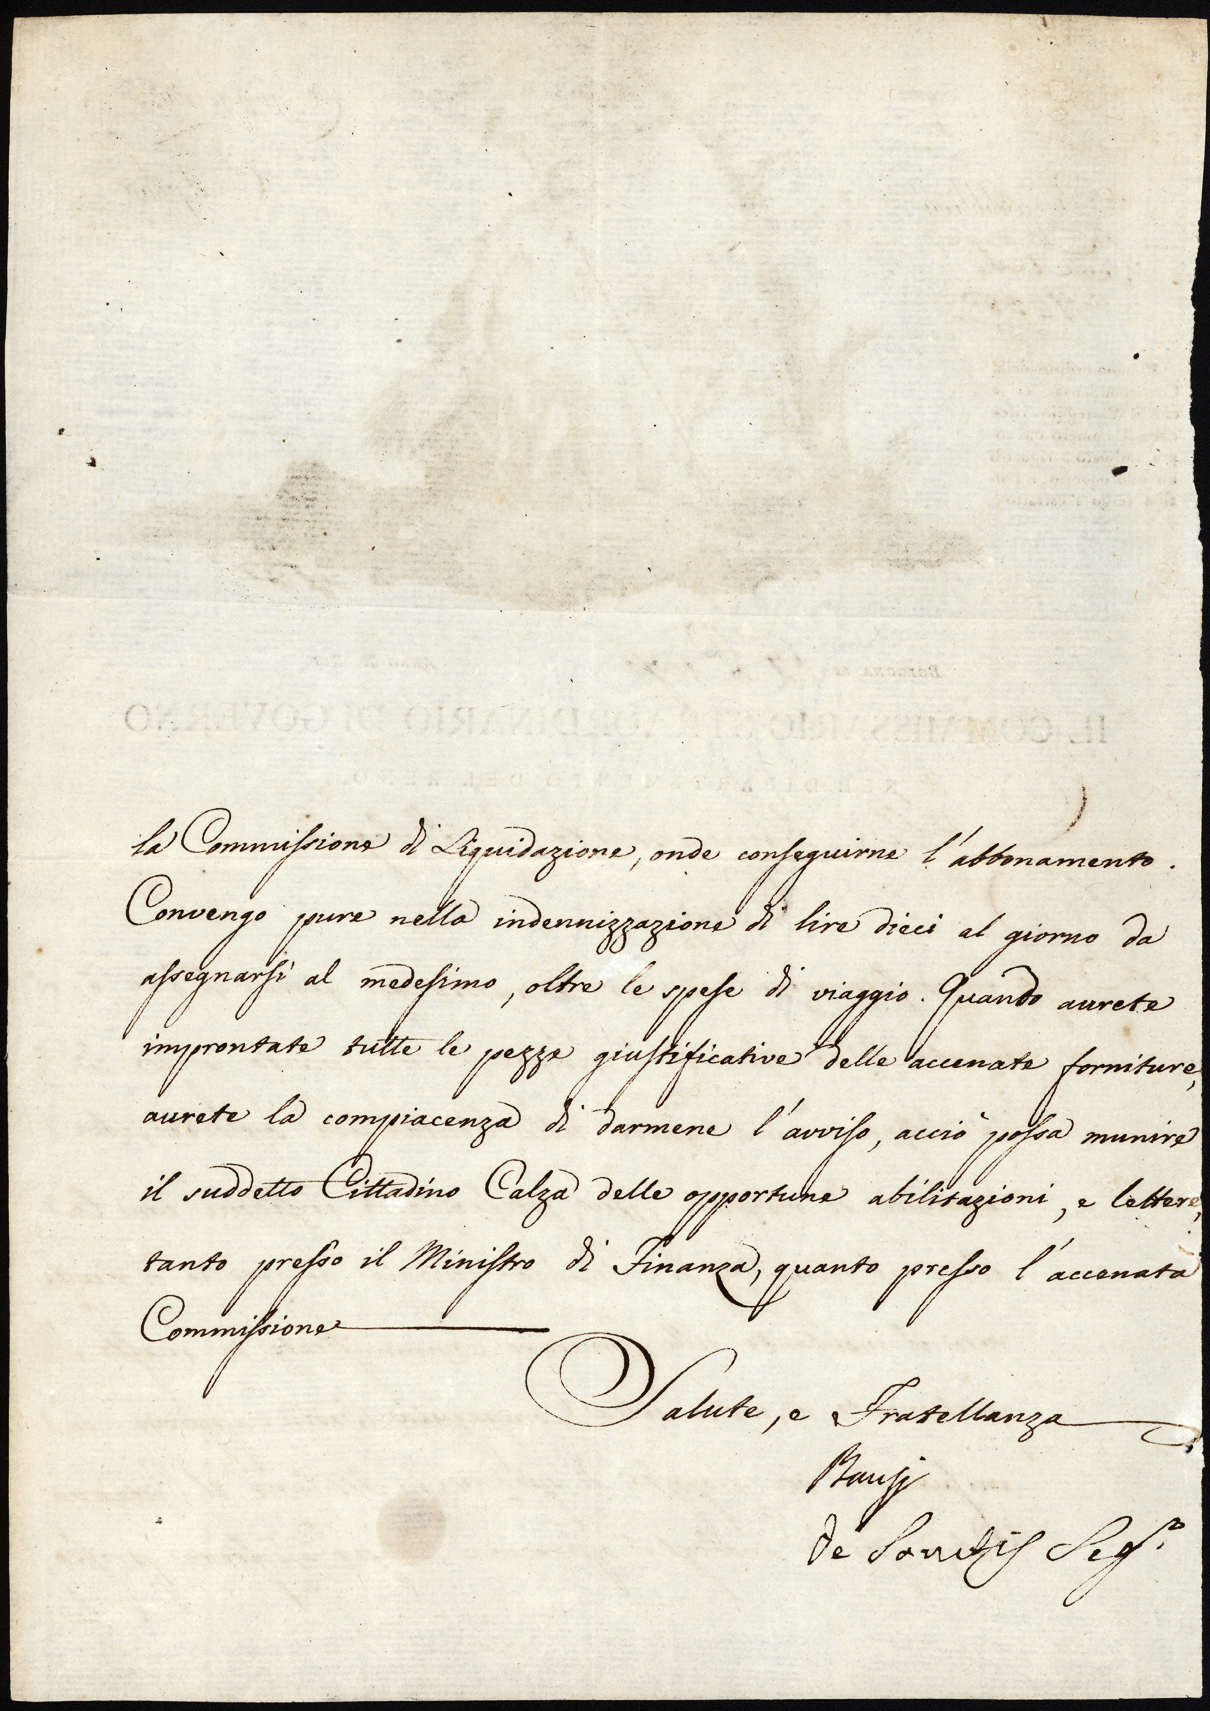 la Commissione di Liquidazione, onde conseguirne l'abbonamento.
Convengo pure nella indennizzazione di lire dieci al giorno da
assegnarsi al medesimo, oltre le spese di viaggio. Quando avrete
improntate tutte le pezze giustificative delle accenate forniture,
avrete la compiacenza di darmene l'avviso, acciò possa munire
il suddetto Cittadino Calza delle opportune abilitazioni, e lettere,
tanto presso il Ministro di Finanza, quanto presso l'accenata
Commissione
Salute, e Fratellanza
de Segr.
IL COMMISSARIO STRAORDINARIO DI GOVERNO
NEL DIPARTIMENTO DEL RENO